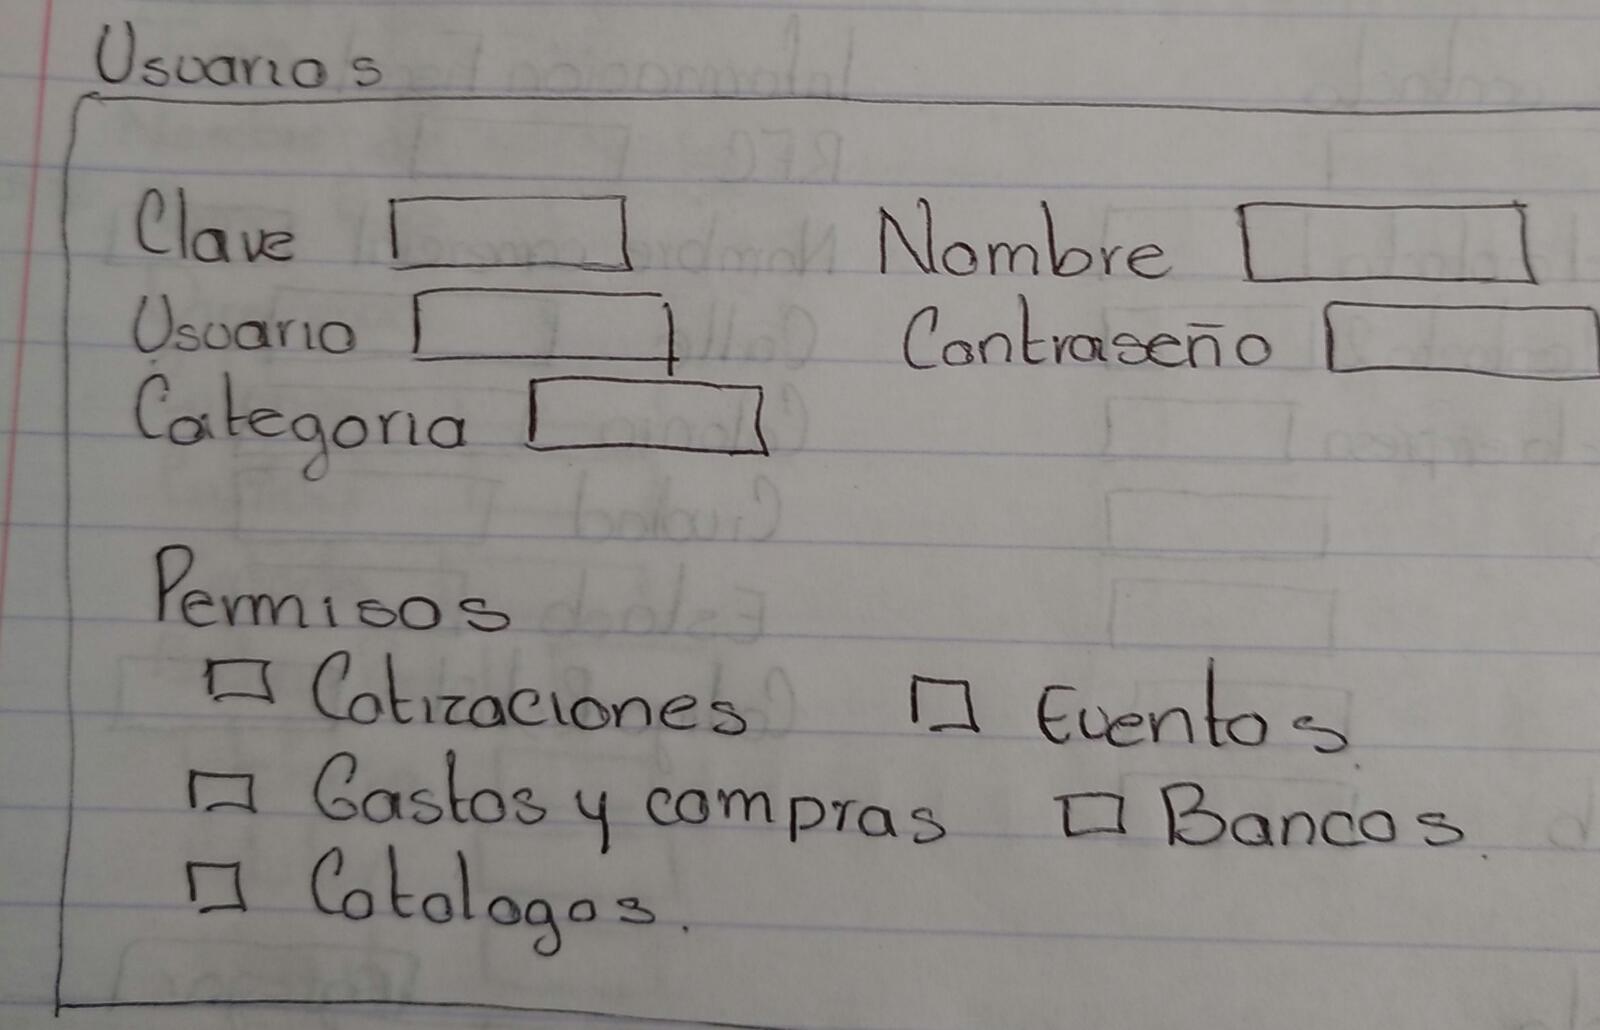 Usuarios
Clave Nombre
Usuario Contraseña
Categoria
Permisos
Cotizaciones Eventos.
Gastos y compras Bancos.
Catalogos.